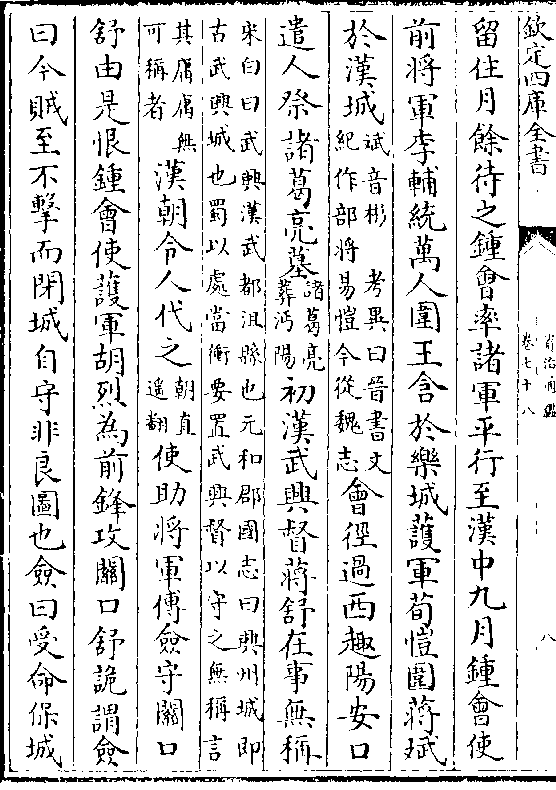 欽定四庫全書
資治通鑑
卷七十八
八
留住月餘待之鍾會率諸軍平行至漢中九月鍾會使
前將軍李輔統萬人圍王含於樂城護軍荀愷圍蔣斌
於漢城
斌音彬 考異曰晉書文
紀作部將易愷今從魏志
會徑過西趣陽安口
遣人祭諸葛亮墓
諸葛亮
葬沔陽
初漢武興督蔣舒在事無稱
宋白曰武興漢武都沮縣也元和郡國志曰興州城即
古武興城也蜀以處當衝要置武興督以守之無稱言
其庸庸無
可稱者
漢朝令人代之
朝直
遥翻
使助將軍傅僉守關口
舒由是恨鍾會使護軍胡烈為前鋒攻關口舒詭謂僉
曰今賊至不擊而閉城自守非良圖也僉曰受命保城